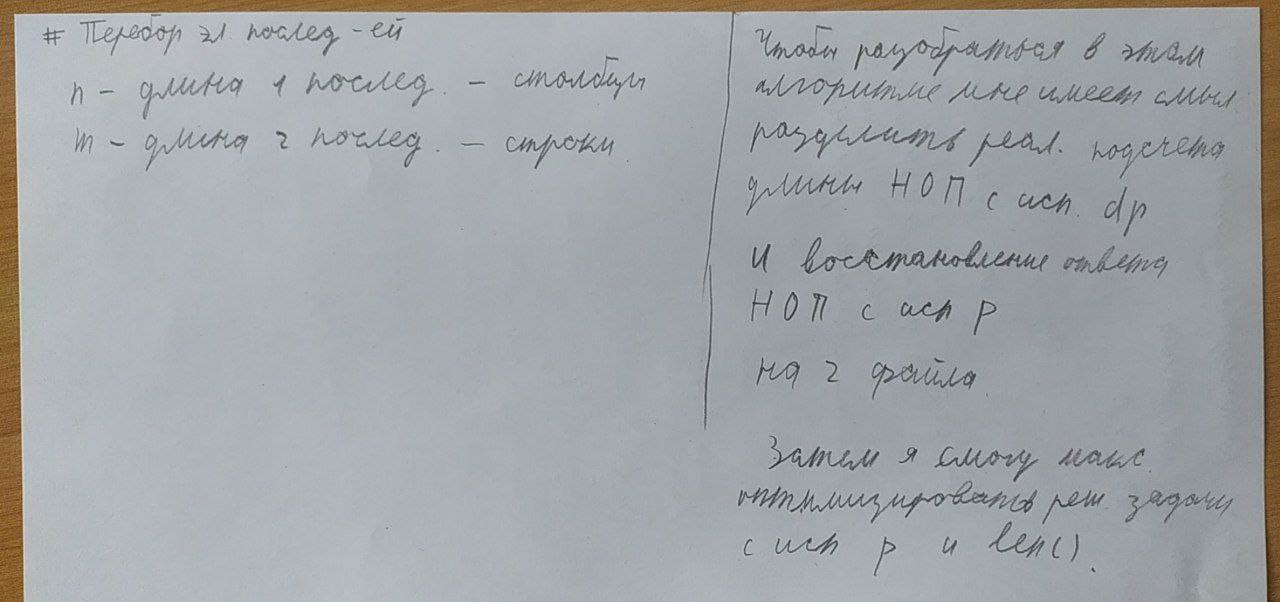 # Перебор эл. послед-ей
n - длина 1 послед. - столбцы
m - длина 2 послед. - строки
Чтобы разобраться в этом
алгоритме мне имеет смысл
разделить реал. подсчета
длины НОП с исп. dp
и восстановление ответа
НОП с исп p
на 2 файла
Затем я смогу макс.
оптимизировать реш. задачи
с исп p и len().